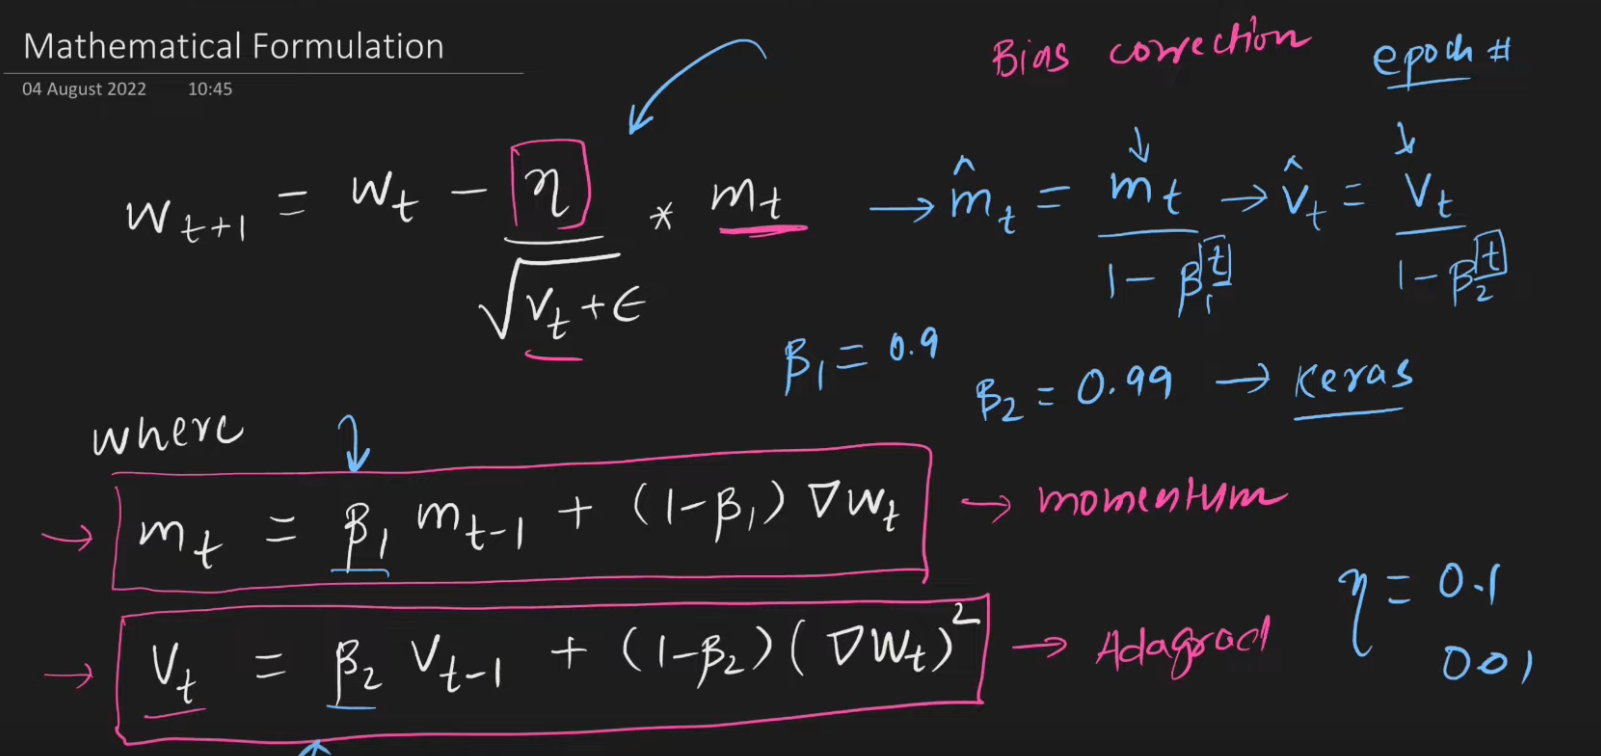 Mathematical Formulation
04 August 2022 10:45
Bias correction
epoch #
w_{t+1} = w_t - η / √(v_t + ϵ) * m_t → m̂_t = m_t / (1 - β_1^t) → v̂_t = v_t / (1 - β_2^t)
β_1 = 0.9
β_2 = 0.99 → keras
where
→ m_t = β_1 m_{t-1} + (1-β_1) ∇w_t → momentum
→ v_t = β_2 v_{t-1} + (1-β_2)(∇w_t)^2 → Adagrad
η = 0.1
001